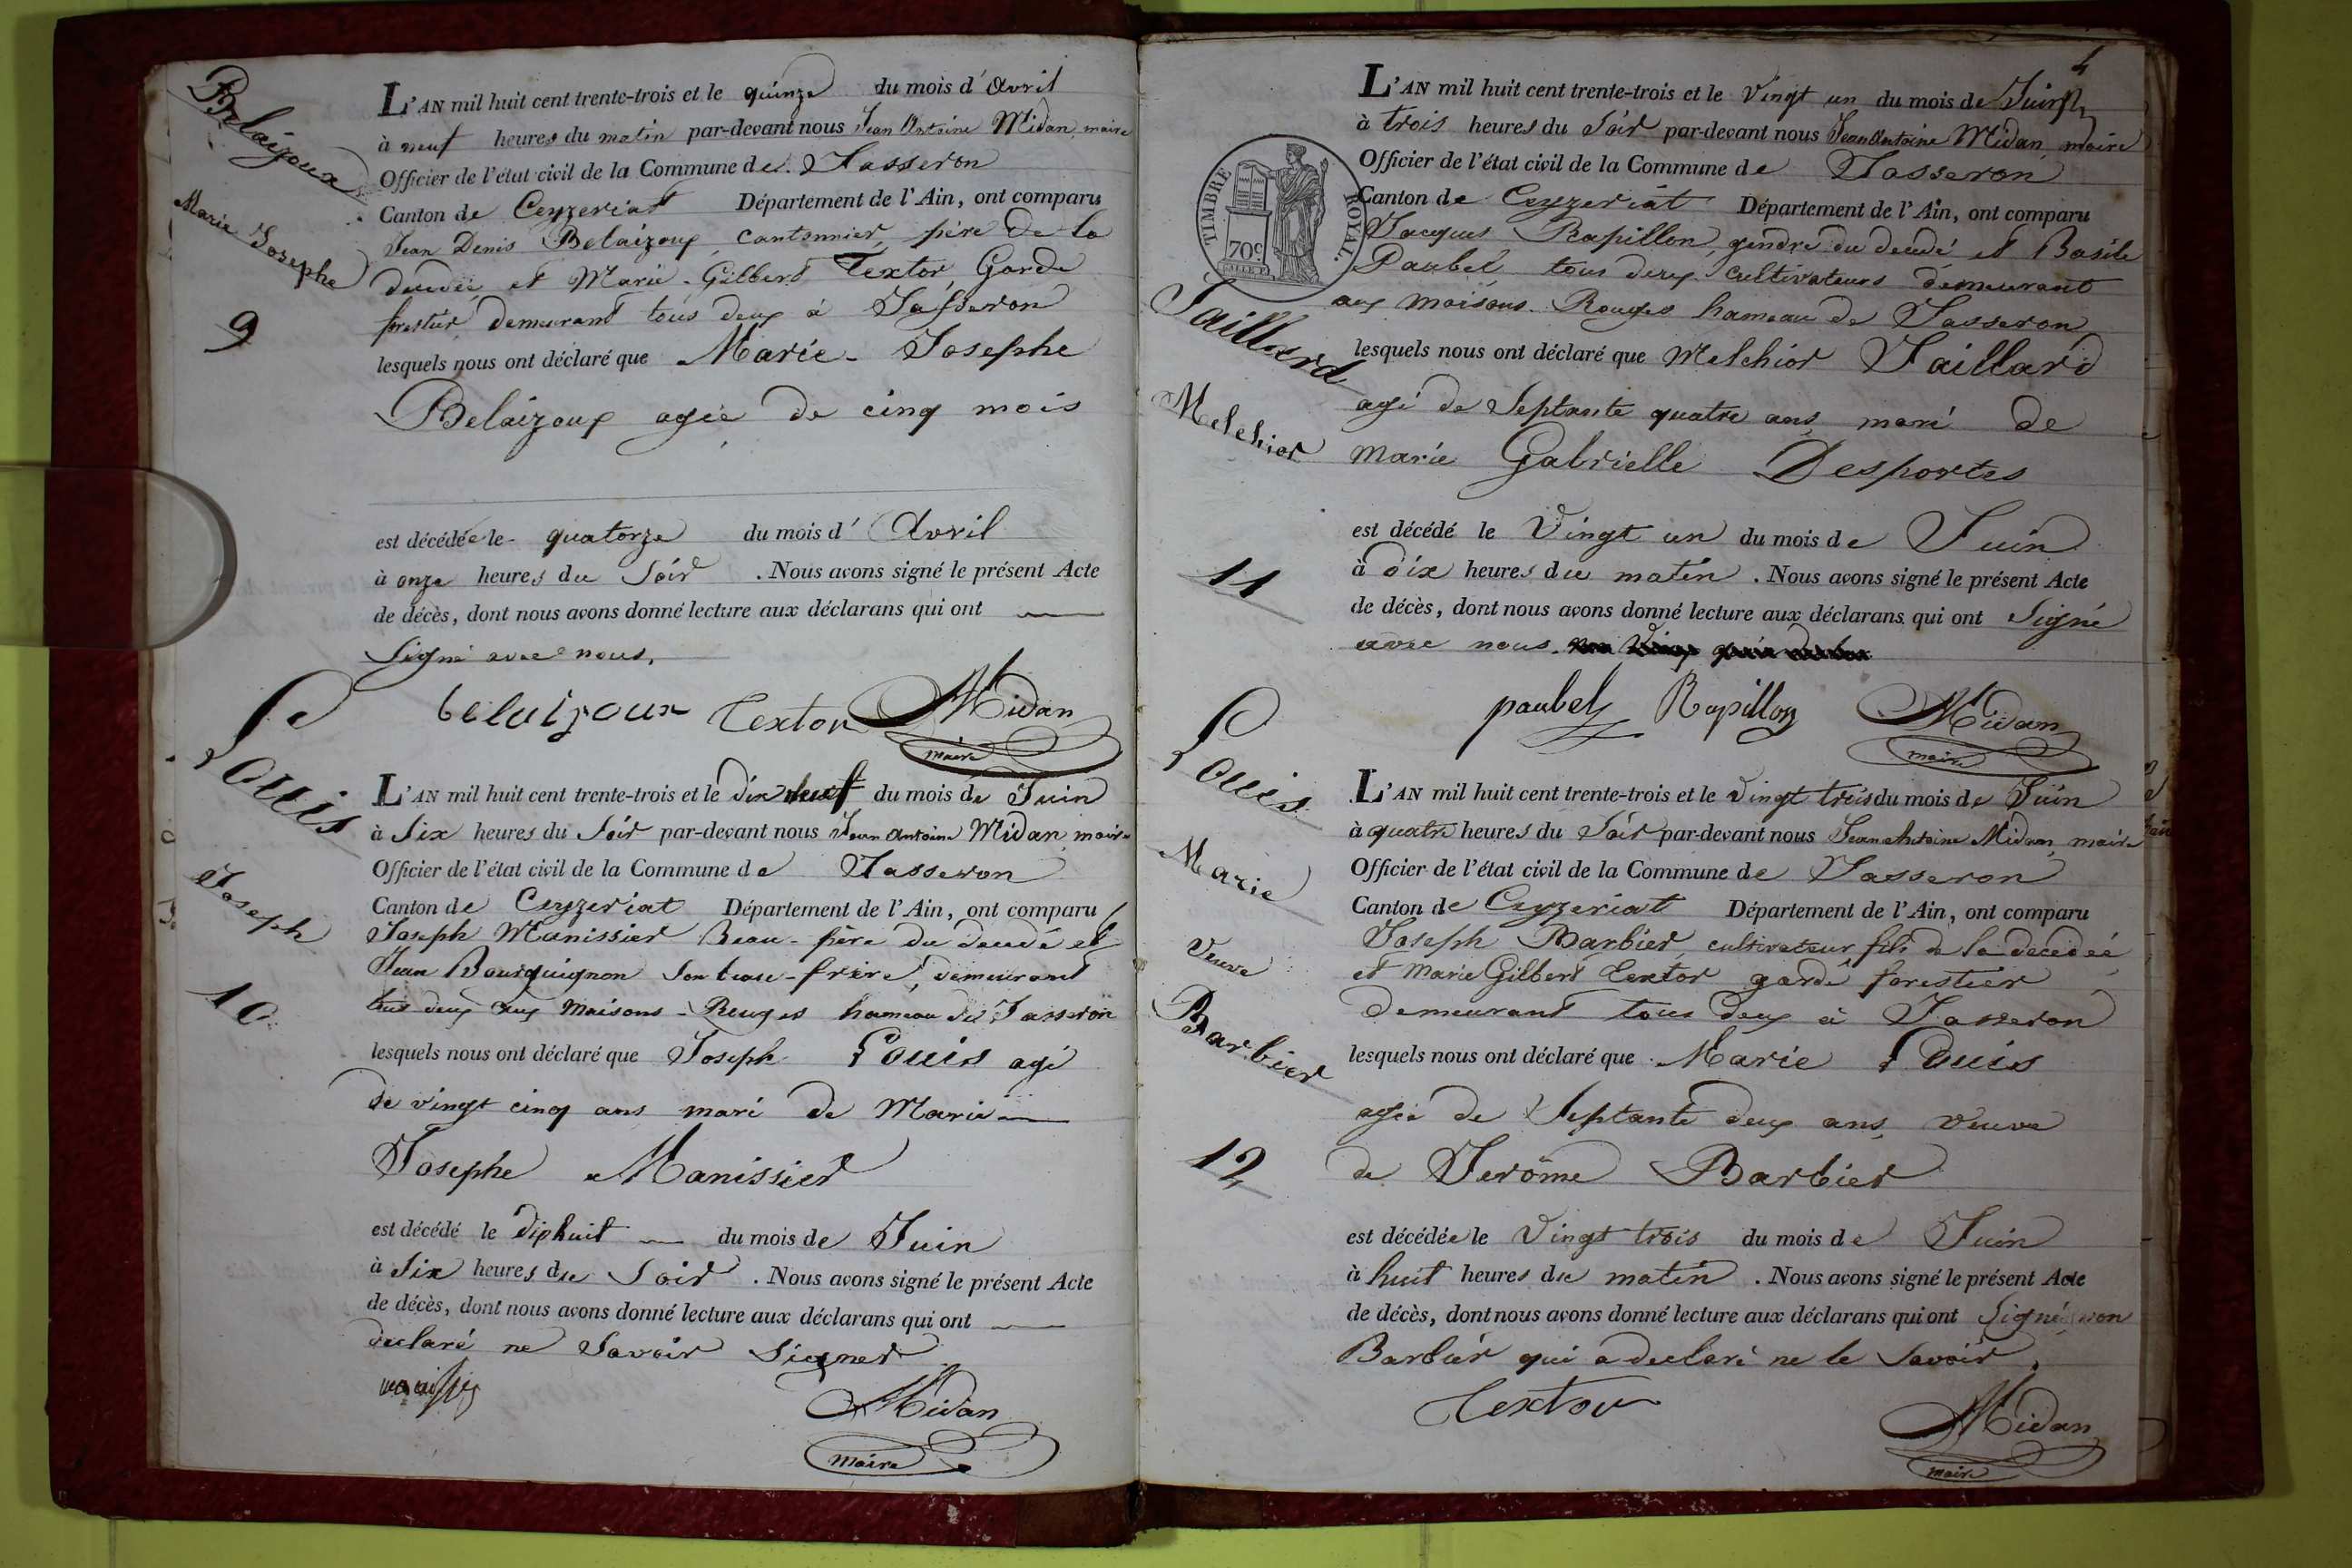 Belaizoux
Marie Josephe
9
L'AN mil huit cent trente-trois et le quinze du mois d'Avril
à neuf heures du matin par-devant nous Jean Antoine Midan, maire
Officier de l'état civil de la Commune de Jasseron
Canton de Ceyzeriat Département de l'Ain, ont comparu
Jean Denis Belaizoux, cantonnier, père de la
décédée et Marie-Gilbert Textor, Garde
forestier demeurant tous deux à Jasseron
lesquels nous ont déclaré que Marie-Josephe
Belaizoux agée de cinq mois
est décédée le quatorze du mois d'Avril
à onze heures du Soir. Nous avons signé le présent Acte
de décès, dont nous avons donné lecture aux déclarans qui ont
Signé avec nous.
belaizoux Textor Midan
maire
Louis
Joseph
10
L'AN mil huit cent trente-trois et le dix neuf du mois de Juin
à Six heures du Soir par-devant nous Jean Antoine Midan, maire
Officier de l'état civil de la Commune de Jasseron
Canton de Ceyzeriat Département de l'Ain, ont comparu
Joseph Manissier Beau-père du décédé et
Jean Bourguignon Son beau-frère, demeurant
tous deux aux Maisons-Rouges hameau de Jasseron
lesquels nous ont déclaré que Joseph Louis agé
de vingt cinq ans mari de Marie
Josephe Manissier
est décédé le dixhuit du mois de Juin
à Six heures du Soir. Nous avons signé le présent Acte
de décès, dont nous avons donné lecture aux déclarans qui ont
declaré ne Savoir Signer
Midan
maire
4
TIMBRE ROYAL.
70c
Jaillard
Melchior
11
L'AN mil huit cent trente-trois et le Vingt un du mois de Juin
à trois heures du Soir par-devant nous Jean Antoine Midan, maire
Officier de l'état civil de la Commune de Jasseron
Canton de Ceyzeriat Département de l'Ain, ont comparu
Jacques Rapillon, gendre du décédé et Basile
Paubel tous deux cultivateurs demeurant
aux maisons-Rouges hameau de Jasseron
lesquels nous ont déclaré que Melchior Jaillard
agé de Septante quatre ans mari de
Marie Gabrielle Desportes
est décédé le Vingt un du mois de Juin
à dix heures du matin. Nous avons signé le présent Acte
de décès, dont nous avons donné lecture aux déclarans qui ont Signé
avec nous.
paubel Rapillon Midan
maire
Louis
Marie
Veuve
Barbier
12
L'AN mil huit cent trente-trois et le Vingt trois du mois de Juin
à quatre heures du Soir par-devant nous Jean Antoine Midan, maire
Officier de l'état civil de la Commune de Jasseron
Canton de Ceyzeriat Département de l'Ain, ont comparu
Joseph Barbier, cultivateur, fils de la décédée
et Marie Gilbert Textor garde forestier
demeurant tous deux à Jasseron
lesquels nous ont déclaré que Marie Louis
agée de Septante deux ans, Veuve
de Jerôme Barbier
est décédée le Vingt trois du mois de Juin
à huit heures du matin. Nous avons signé le présent Acte
de décès, dont nous avons donné lecture aux déclarans qui ont Signé, non
Barbier qui a declaré ne le Savoir.
Textor
Midan
maire